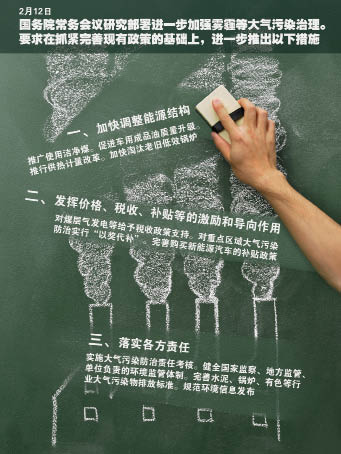 2月12日
国务院常务会议研究部署进一步加强雾霾等大气污染治理。
要求在抓紧完善现有政策的基础上，进一步推出以下措施
一、加快调整能源结构
推广使用洁净煤。促进车用成品油质量升级。
推行供热计量改革。加快淘汰老旧低效锅炉
二、发挥价格、税收、补贴等的激励和导向作用
对煤层气发电等给予税收政策支持。对重点区域大气污染
防治实行“以奖代补”。完善购买新能源汽车的补贴政策
三、落实各方责任
实施大气污染防治责任考核。健全国家监察、地方监管、
单位负责的环境监管体制。完善水泥、锅炉、有色等行
业大气污染物排放标准。规范环境信息发布